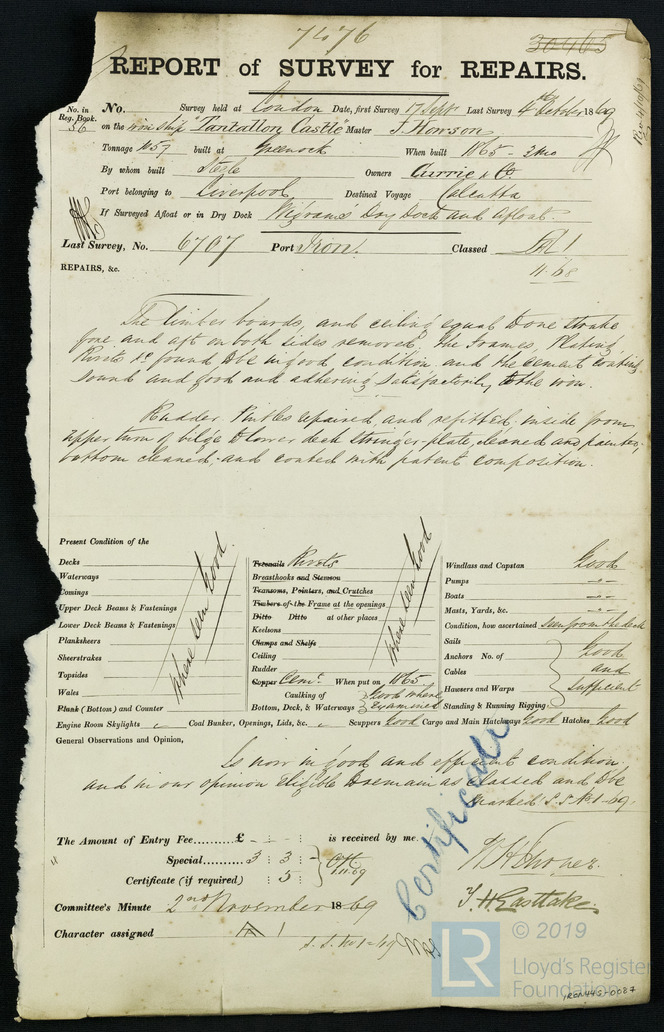 7476
30465
REPORT of SURVEY for REPAIRS.
No. in Reg. Book. 56
No. Survey held at London Date, first Survey 17 Sept Last Survey 4th October 1869
on the iron Ship "Tantallon Castle" Master J. Howson
Tonnage 1057 built at Greenock When built 1865 - 3mo
By whom built Steele Owners Currie & Co
Port belonging to Liverpool Destined Voyage Calcutta
If Surveyed Afloat or in Dry Dock Wigrams Dry Dock and Afloat.
Last Survey, No. 6707 Port Iron. Classed A 1
REPAIRS, &c. 11.68
The limber boards, and ceiling equal to one strake
fore and aft on both sides removed, the frames, Plating
Rivets &c found to be in good condition and the cement coating
sound and good and adhering satisfactorily to the iron.
Rudder Pintles repaired and refitted, inside from
upper turn of bilge to lower deck stringer plate, cleaned and painted,
bottom cleaned, and coated with patent composition.
Present Condition of the
Decks
Waterways
Comings
Upper Deck Beams & Fastenings
Lower Deck Beams & Fastenings
Planksheers
Sheerstrakes
Topsides
Wales
Plank (Bottom) and Counter
Where seen Good.
Treenails Rivets
Breasthooks and Stemson
Transoms, Pointers, and Crutches
Timbers of the Frame at the openings
Ditto Ditto at other places
Keelsons
Clamps and Shelfs
Ceiling
Rudder
Copper Cemt. When put on 1865
Caulking of Bottom, Deck, & Waterways } Good where Examined
Where seen Good
Windlass and Capstan Good
Pumps -"-
Boats -"-
Masts, Yards, &c. -"-
Condition, how ascertained Seen from the deck
Sails
Anchors No. of
Cables
Hawsers and Warps
Standing & Running Rigging
Good and sufficient
Engine Room Skylights " Coal Bunker, Openings, Lids, &c. " Scuppers Good Cargo and Main Hatchways Good Hatches Good
General Observations and Opinion,
Is now in good and efficient condition
and in our opinion eligible to remain as classed and to be
marked S.S. No 1-69.
Certificate
The Amount of Entry Fee..........£ - : - : is received by me.
Special......... 3 : 3 : -
Certificate (if required) : 5 :
Committee's Minute 2nd November 1869
Character assigned A 1
S.S. No 1-69
T. H. Eastlake
LR
© 2019
Lloyd's Register
Foundation
IRON445-0087